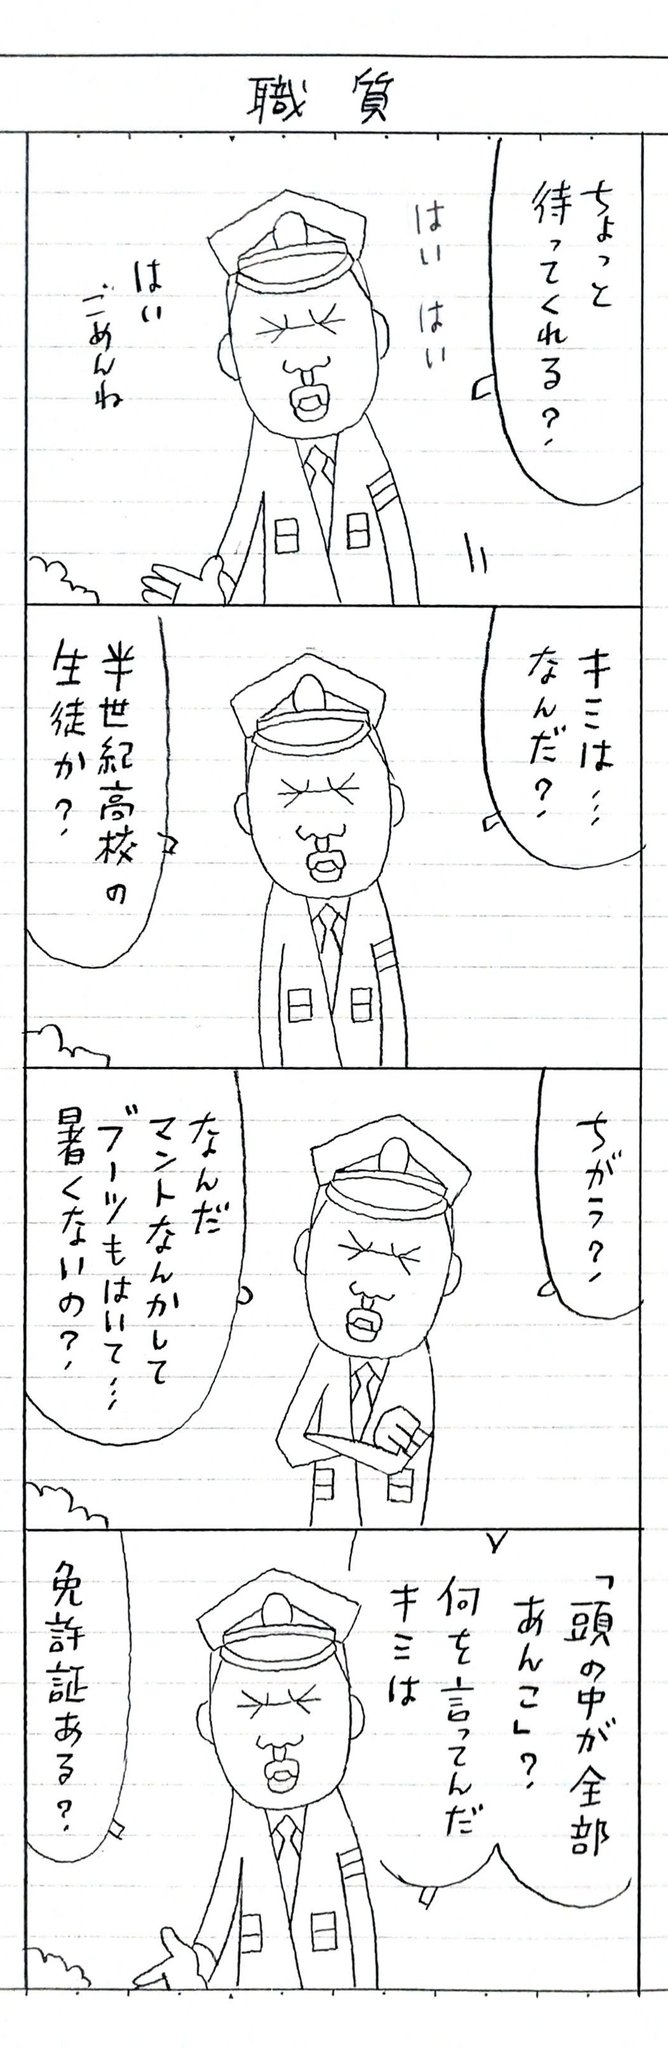 職質
ちょっと
待ってくれる？
はい はい
はい
ごめんね
キミは…
なんだ？
半世紀高校の
生徒か？
ちがう？
なんだ
マントなんかして
ブーツもはいて…
暑くないの？
「頭の中が全部
あんこ」？
何を言ってんだ
キミは
免許証ある？